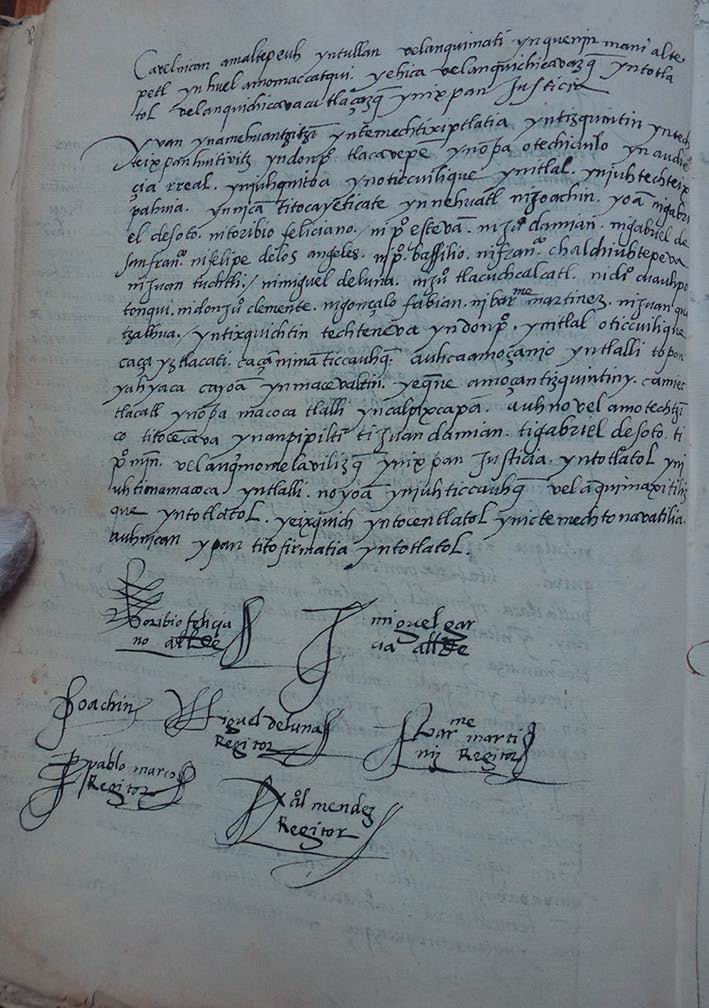 Ca vel nican amaltepeuh yn tullan velanquimati yn quenin mani alte
petl yn huel amomaccatqui. yehica velanquichicavazq̃ yn totla
tol velanquichicavacatlaçazq̃ yn ixpan Justicia
Yvan yn amehuantzitzĩ yntemechtixiptlatia yn tizquintin yntech
teixpanhuitivitz yn donpº. tlacavepẽ ynoꝑa otechicuilo yn audiẽ
çia rreal. yn juhquitoa ynoticcuilique yn itlal. yn juh techteix
pahuia. yn nicã titocayeticate yn nehuatl nijoachin. yoã nigabri
el desoto. nitoribio feliciano. nipº estevã. nijuº damian. nigabriel de
san franº. nifelipe de los angeles. nipº. bassilio. nifranº. chalchiuhtepeva
nijuan tuchtli. / nimiguel deluna. nijuº tlacuchcalcatl. nidiº quauhpo
tonqui. nidonjuº clemente. nigonçalo fabian. nibarme martinez. nijuan que
tzalhua. / yn tixquichtin techteneva yn donpº. yn itlal oticcuilique
caça yztlacati. caçã niman ticcauhq̃. auh ca amo çanio yn tlalli topan
yahyaca cayoã yn macevaltin. yequene amo çantizquintiny. ca miec
tlacatl ynoꝑa macoca tlalli yn calpixcapã. auh no vel amo techtzi
co titocẽcava yn anpipiltĩ tijuan damian. tigabriel desoto. ti
pº mĩn. velanq̃momelavilizq̃ yn ixpan Justicia. yn totlatol ynj
uh tionamacoca yn tlalli. noyoã yn juh ticcauhq̃ vel aquimaxitiliz
que yn totlatol. ye ixquich yn tocentlatol ynictemechtonavatilia.
auh nican ypan titofirmatia yn totlatol.
Toribio feliçia
no allde
miguel gar
çia allde
Joachin
Miguel deluna
Regitor
Barme marti
niz Regitor
pablo marcos
Regitor
xp̃oal mendez
Regitor